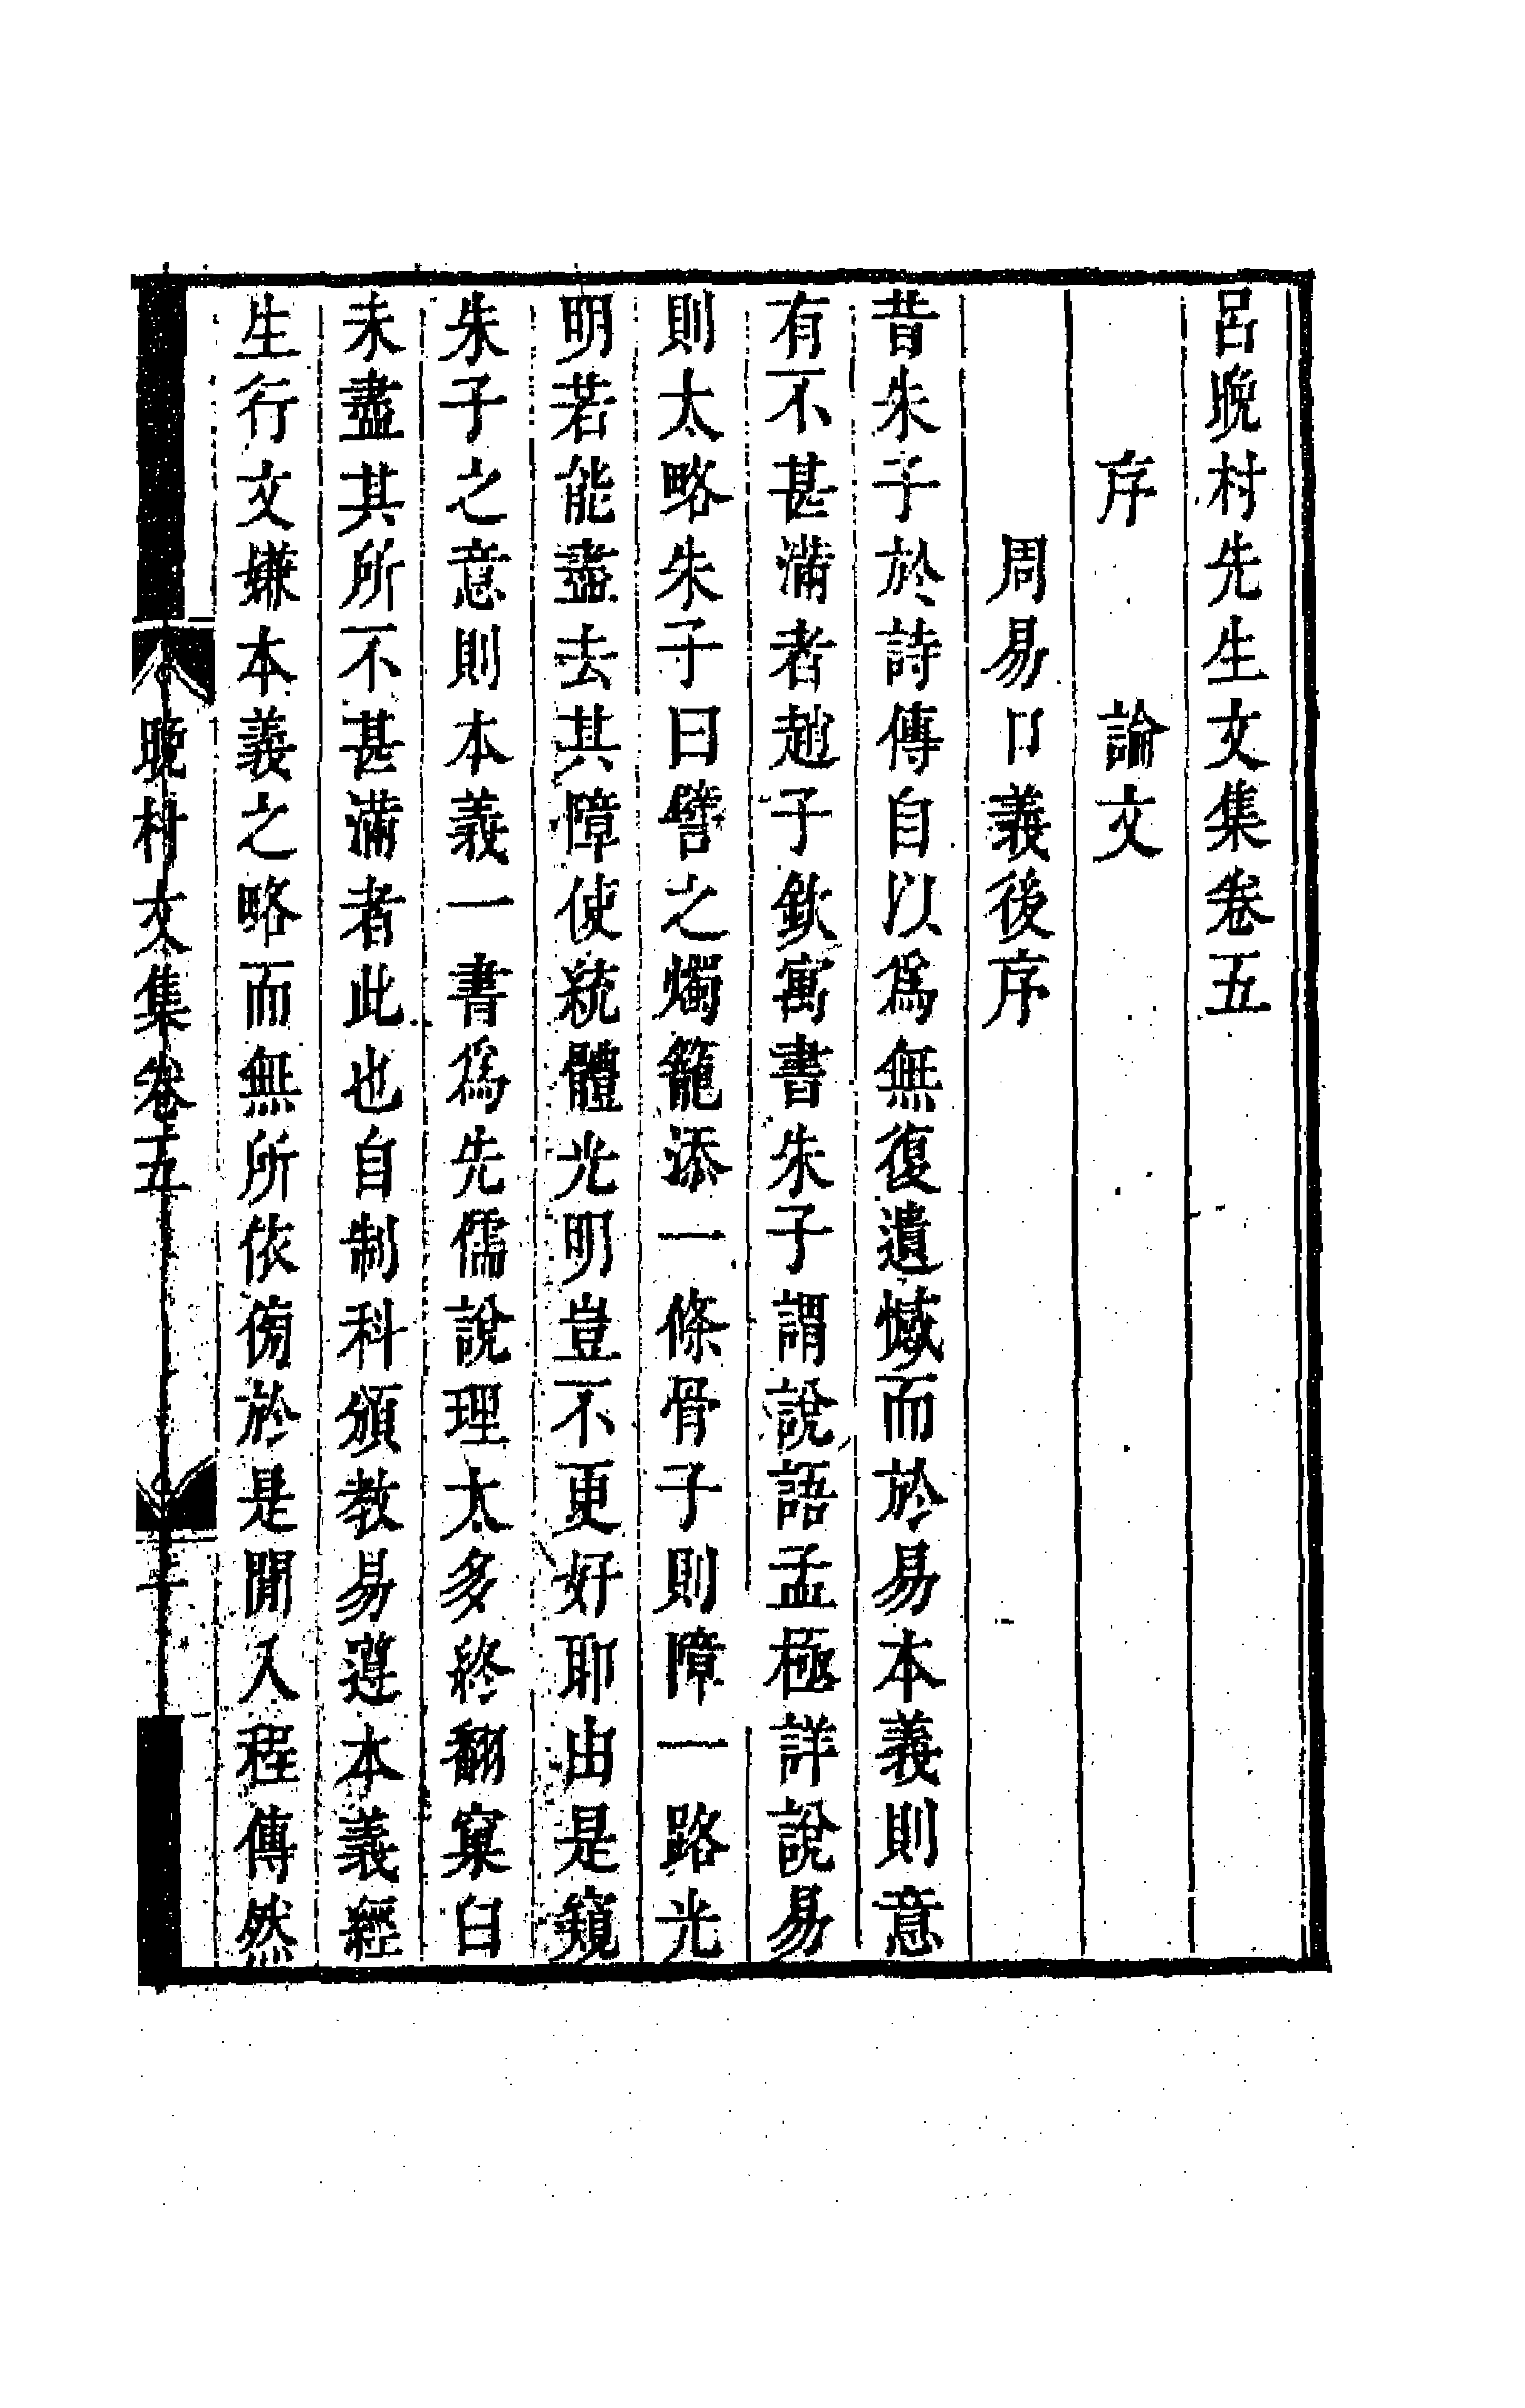 呂晚村先生文集卷五
序　論文
周易口義後序
昔朱子於詩傳自以爲無復遺憾而於易本義則意
有不甚滿者趙子欽寓書朱子謂說語孟極詳說易
則太略朱子曰譬之燭籠添一條骨子則障一路光
明若能盡去其障使統體光明豈不更好耶由是窺
朱子之意則本義一書爲先儒說理太多終翻窠臼
未盡其所不甚滿者此也自制科頒教易遵本義經
生行文嫌本義之略而無所依傍於是閒入程傳然
晚村文集卷五